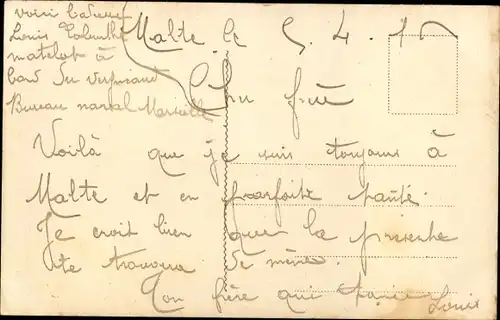 voici l'adresse
Louis
matelot à
bord du
Bureau naval Marseille
Malte le 5. 4. 
Cher frère
Voilà que je suis toujours à
Malte et en parfaite santé.
Je croit bien que la présente
te trouvera de même.
Ton frère qui Louis